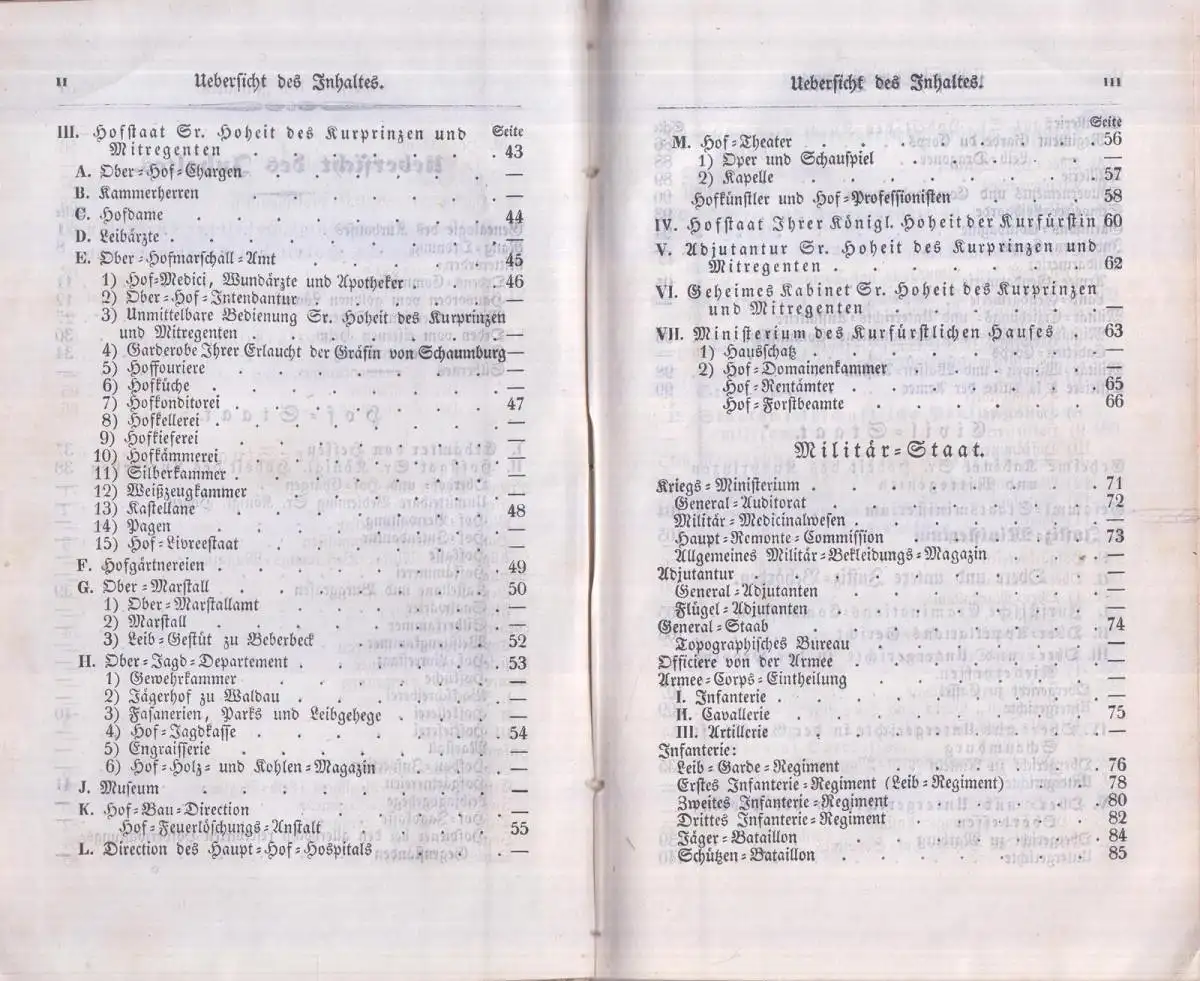 II
Uebersicht des Inhaltes.
III. Hofstaat Sr. Hoheit des Kurprinzen und Seite
Mitregenten . . . . . . . 43
A. Ober-Hof-Chargen . . . . . —
B. Kammerherren . . . . . . —
C. Hofdame . . . . . . . 44
D. Leibärzte . . . . . . . —
E. Ober-Hofmarschall-Amt . . . . . 45
1) Hof-Medici, Wundärzte und Apotheker . . 46
2) Ober-Hof-Intendantur . . . . —
3) Unmittelbare Bedienung Sr. Hoheit des Kurprinzen
und Mitregenten . . . . . —
4) Garderobe Ihrer Erlaucht der Gräfin von Schaumburg—
5) Hoffouriere . . . . . . —
6) Hofküche . . . . . . —
7) Hofkonditorei . . . . . . 47
8) Hofkellerei . . . . . . —
9) Hofkieferei . . . . . . —
10) Hofkämmerei . . . . . . —
11) Silberkammer . . . . . . —
12) Weißzeugkammer . . . . . —
13) Kastellane . . . . . . 48
14) Pagen . . . . . . —
15) Hof-Livreestaat . . . . . —
F. Hofgärtnereien . . . . . . 49
G. Ober-Marstall . . . . . . 50
1) Ober-Marstallamt . . . . . —
2) Marstall . . . . . . —
3) Leib-Gestüt zu Beberbeck . . . . 52
H. Ober-Jagd-Departement . . . . . 53
1) Gewehrkammer . . . . . —
2) Jägerhof zu Waldau . . . . . —
3) Fasanerien, Parks und Leibgehege . . . —
4) Hof-Jagdkasse . . . . . . 54
5) Engraisserie . . . . . . —
6) Hof-Holz- und Kohlen-Magazin . . . —
J. Museum . . . . . . . —
K. Hof-Bau-Direction . . . . . —
Hof-Feuerlöschungs-Anstalt . . . . 55
L. Direction des Haupt-Hof-Hospitals . . . —
Uebersicht des Inhaltes.
III
Seite
M. Hof-Theater . . . . . . 56
1) Oper und Schauspiel . . . . . —
2) Kapelle . . . . . . 57
Hofkünstler und Hof-Professionisten . . . 58
IV. Hofstaat Ihrer Königl. Hoheit der Kurfürstin 60
V. Adjutantur Sr. Hoheit des Kurprinzen und
Mitregenten . . . . . . . 62
VI. Geheimes Kabinet Sr. Hoheit des Kurprinzen
und Mitregenten . . . . . . —
VII. Ministerium des Kurfürstlichen Hauses . 63
1) Hausschatz . . . . . . —
2) Hof-Domainenkammer . . . . . —
Hof-Rentämter . . . . . 65
Hof-Forstbeamte . . . . . 66
Militär-Staat.
Kriegs-Ministerium . . . . . . 71
General-Auditorat . . . . . . 72
Militär-Medicinalwesen . . . . . —
Haupt-Remonte-Commission . . . . 73
Allgemeines Militär-Bekleidungs-Magazin . . —
Adjutantur . . . . . . . —
General-Adjutanten . . . . . —
Flügel-Adjutanten . . . . . —
General-Staab . . . . . . 74
Topographisches Bureau . . . . . —
Officiere von der Armee . . . . . —
Armee-Corps-Eintheilung . . . . . —
I. Infanterie . . . . . . —
II. Cavallerie . . . . . . 75
III. Artillerie . . . . . . —
Infanterie:
Leib-Garde-Regiment . . . . . 76
Erstes Infanterie-Regiment (Leib-Regiment) . . 78
Zweites Infanterie-Regiment . . . . 80
Drittes Infanterie-Regiment . . . . 82
Jäger-Bataillon . . . . . . 84
Schützen-Bataillon . . . . . . 85